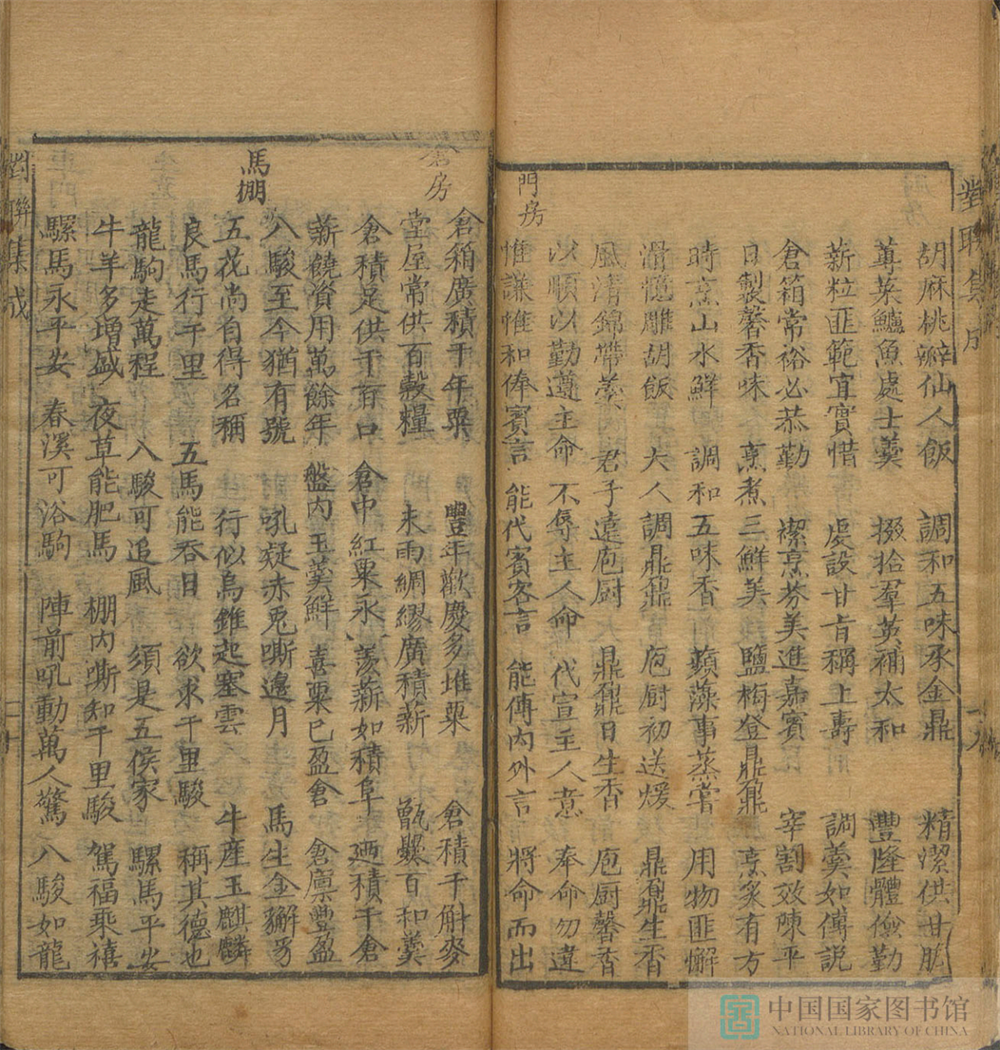 對聯集成
胡麻桃瓣仙人飯 調和五味承金鼎 精潔供甘
蓴菜鱸魚處士羹 掇拾羣英補太和 豐隆體儉勤
薪粒匪範宜實惜 處設甘旨稱上壽 調羹如傅說
倉箱常裕必恭勤 潔烹芬美進嘉賓 宰割效陳平
日製馨香味 烹煮三鮮美 鹽梅登鼎鼐 烹炙有方
時烹山水鮮 調和五味香 蘋藻事蒸嘗 用物匪懈
滑憶雕胡飯 大人調鼎鼐 庖厨初送煖 鼎鼐生香
風清錦帶羹 君子遠庖厨 鼎鼐日生香 庖厨馨香
門房
以順以勤遵主命 不辱主人命 代宣主人意 奉命勿違
惟謙惟和俸賓言 能代賓客言 能傳內外言 將命而出
倉房
倉箱廣積千年粟 豐年歡慶多堆粟 倉積千斛麥
堂屋常供百穀糧 未雨綢繆廣積薪 甑爨百和羹
倉積足供千百口 倉中紅粟永 羨薪如積阜 廼積千倉
薪饒資用萬餘年 盤內玉羹鮮 喜粟已盈倉 倉廩豐盈
馬棚
八駿至今猶有號 吼疑赤兎嘶邊月 馬生金獬豸
五花尚自得名稱 行似烏錐起塞雲 牛産玉麒麟
良馬行千里 五馬能吞日 欲求千里駿 稱其德也
龍駒走萬程 八駿可追風 須是五侯家 騾馬平安
牛羊多增盛 夜草能肥馬 棚內嘶知千里駿 駕福乘禧
騾馬永平安 春溪可浴駒 陣前吼動萬人驚 八駿如龍
對聯集成
中国国家图书馆
NATIONAL LIBRARY OF CHINA